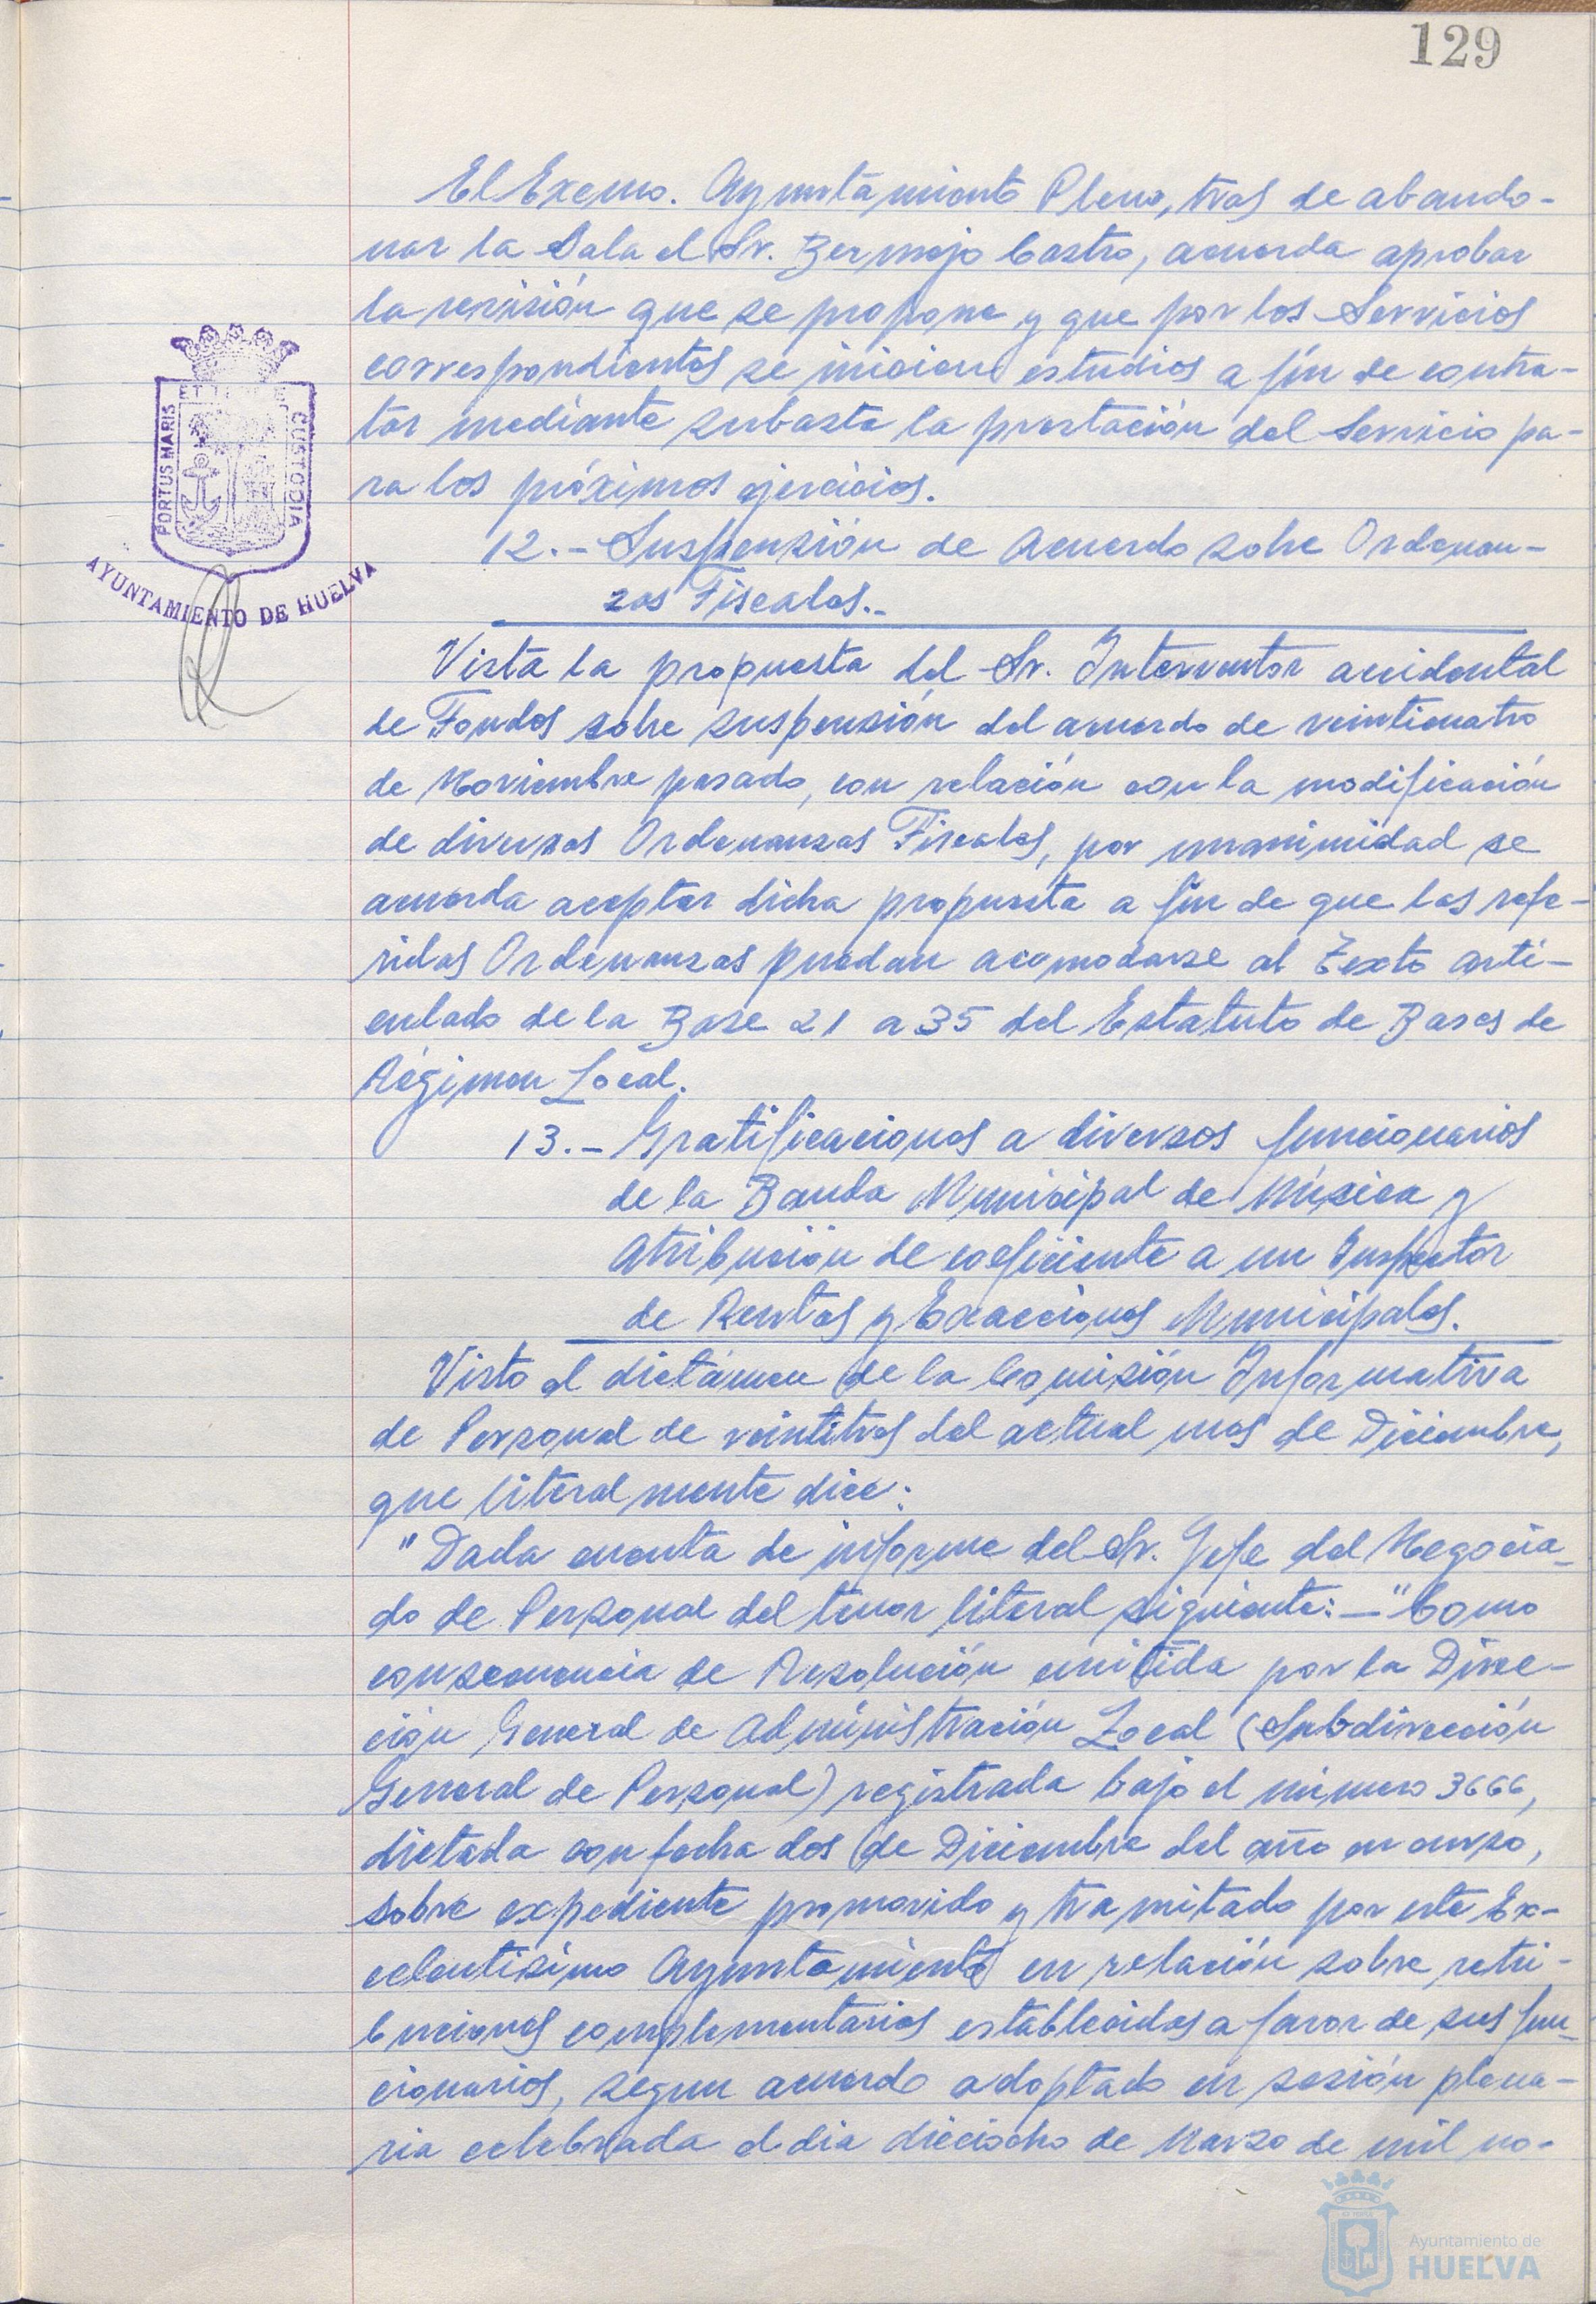 129
El Excmo. Ayuntamiento Pleno, tras de abando-
nar la Sala el Sr. Bermejo Castro, acuerda aprobar
la revisión que se propone y que por los Servicios
correspondientes se inicien estudios a fin de contra-
tar mediante subasta la prestación del Servicio pa-
ra los próximos ejercicios.
12.- Suspensión de Acuerdo sobre Ordenan-
zas Fiscales.-
Vista la propuesta del Sr. Interventor accidental
de Fondos sobre suspensión del acuerdo de veinticuatro
de Noviembre pasado, con relación con la modificación
de diversas Ordenanzas Fiscales, por unanimidad se
acuerda aceptar dicha propuesta a fin de que las refe-
ridas Ordenanzas puedan acomodarse al Texto arti-
culado de la Base 21 a 35 del Estatuto de Bases de
Régimen Local.
13.- Gratificaciones a diversos funcionarios
de la Banda Municipal de Música y
Atribución de coeficiente a un Inspector
de Rentas y Exacciones Municipales.
Visto el dictámen de la Comisión Informativa
de Personal de veintitres del actual mes de Diciembre,
que literalmente dice:
"Dada cuenta de informe del Sr. Jefe del Negocia-
do de Personal del tenor literal siguiente: - "Como
consecuencia de Resolución emitida por la Direc-
ción General de Administración Local (Subdirección
General de Personal) registrada bajo el número 3666,
dictada con fecha dos de Diciembre del año en curso,
sobre expediente promovido y tramitado por este Ex-
celentisimo Ayuntamiento en relación sobre retri-
buciones complementarias establecidas a favor de sus fun-
cionarios, segun acuerdo adoptado en sesión plena-
ria celebrada el dia dieciocho de Marzo de mil no-
PORTUS MARIS
CUSTODIA
AYUNTAMIENTO DE HUELVA
Ayuntamiento de
HUELVA